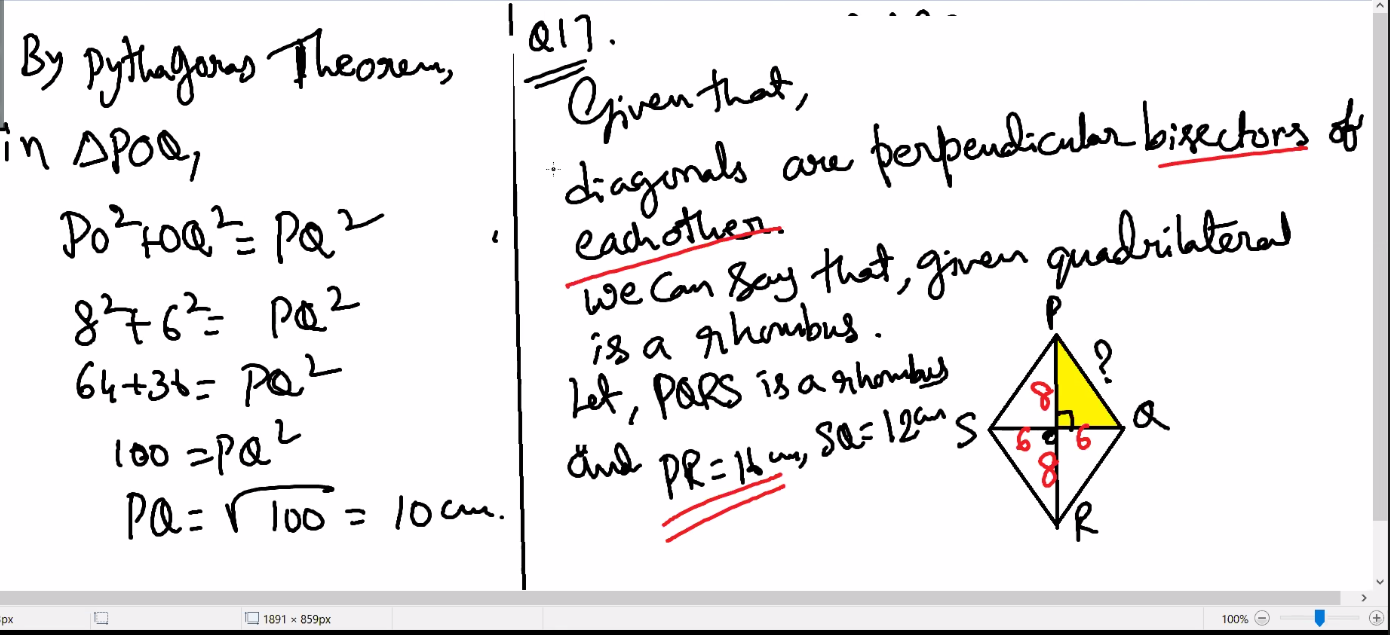 By Pythagoras Theorem,
in ΔPOQ,
PO²+OQ² = PQ²
8²+6² = PQ²
64+36 = PQ²
100 = PQ²
PQ = √100 = 10 cm.
Q17.
Given that,
diagonals are perpendicular bisectors of
each other.
we can say that, given quadrilateral
is a rhombus.
Let, PQRS is a rhombus
and PR = 16 cm, SQ = 12 cm
P
?
8
S
6
O
6
Q
8
R
px
1891 × 859px
100%